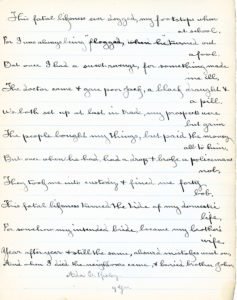 This fatal likeness ever dogged, my footsteps when
at school,
For I was always being flogged, when he turned out
a fool.
But once I had a sweet revenge, for something made
me ill,
The doctor came & gave poor Jack, a black draught &
a pill.
We both set up at last in trade, my prospects were
but grim
The people bought my things, but paid the money
all to him,
But once when he had, had a drop & broke a policemans
nob,
They took me into custody & fined me forty
bob,
This fatal likeness turned the tide of my domestic
life,
For somehow my intended bride, became my brothers
wife.
Year after year & still the same, absurd mistakes went on,
And when I died the neighbours came & buried brother John